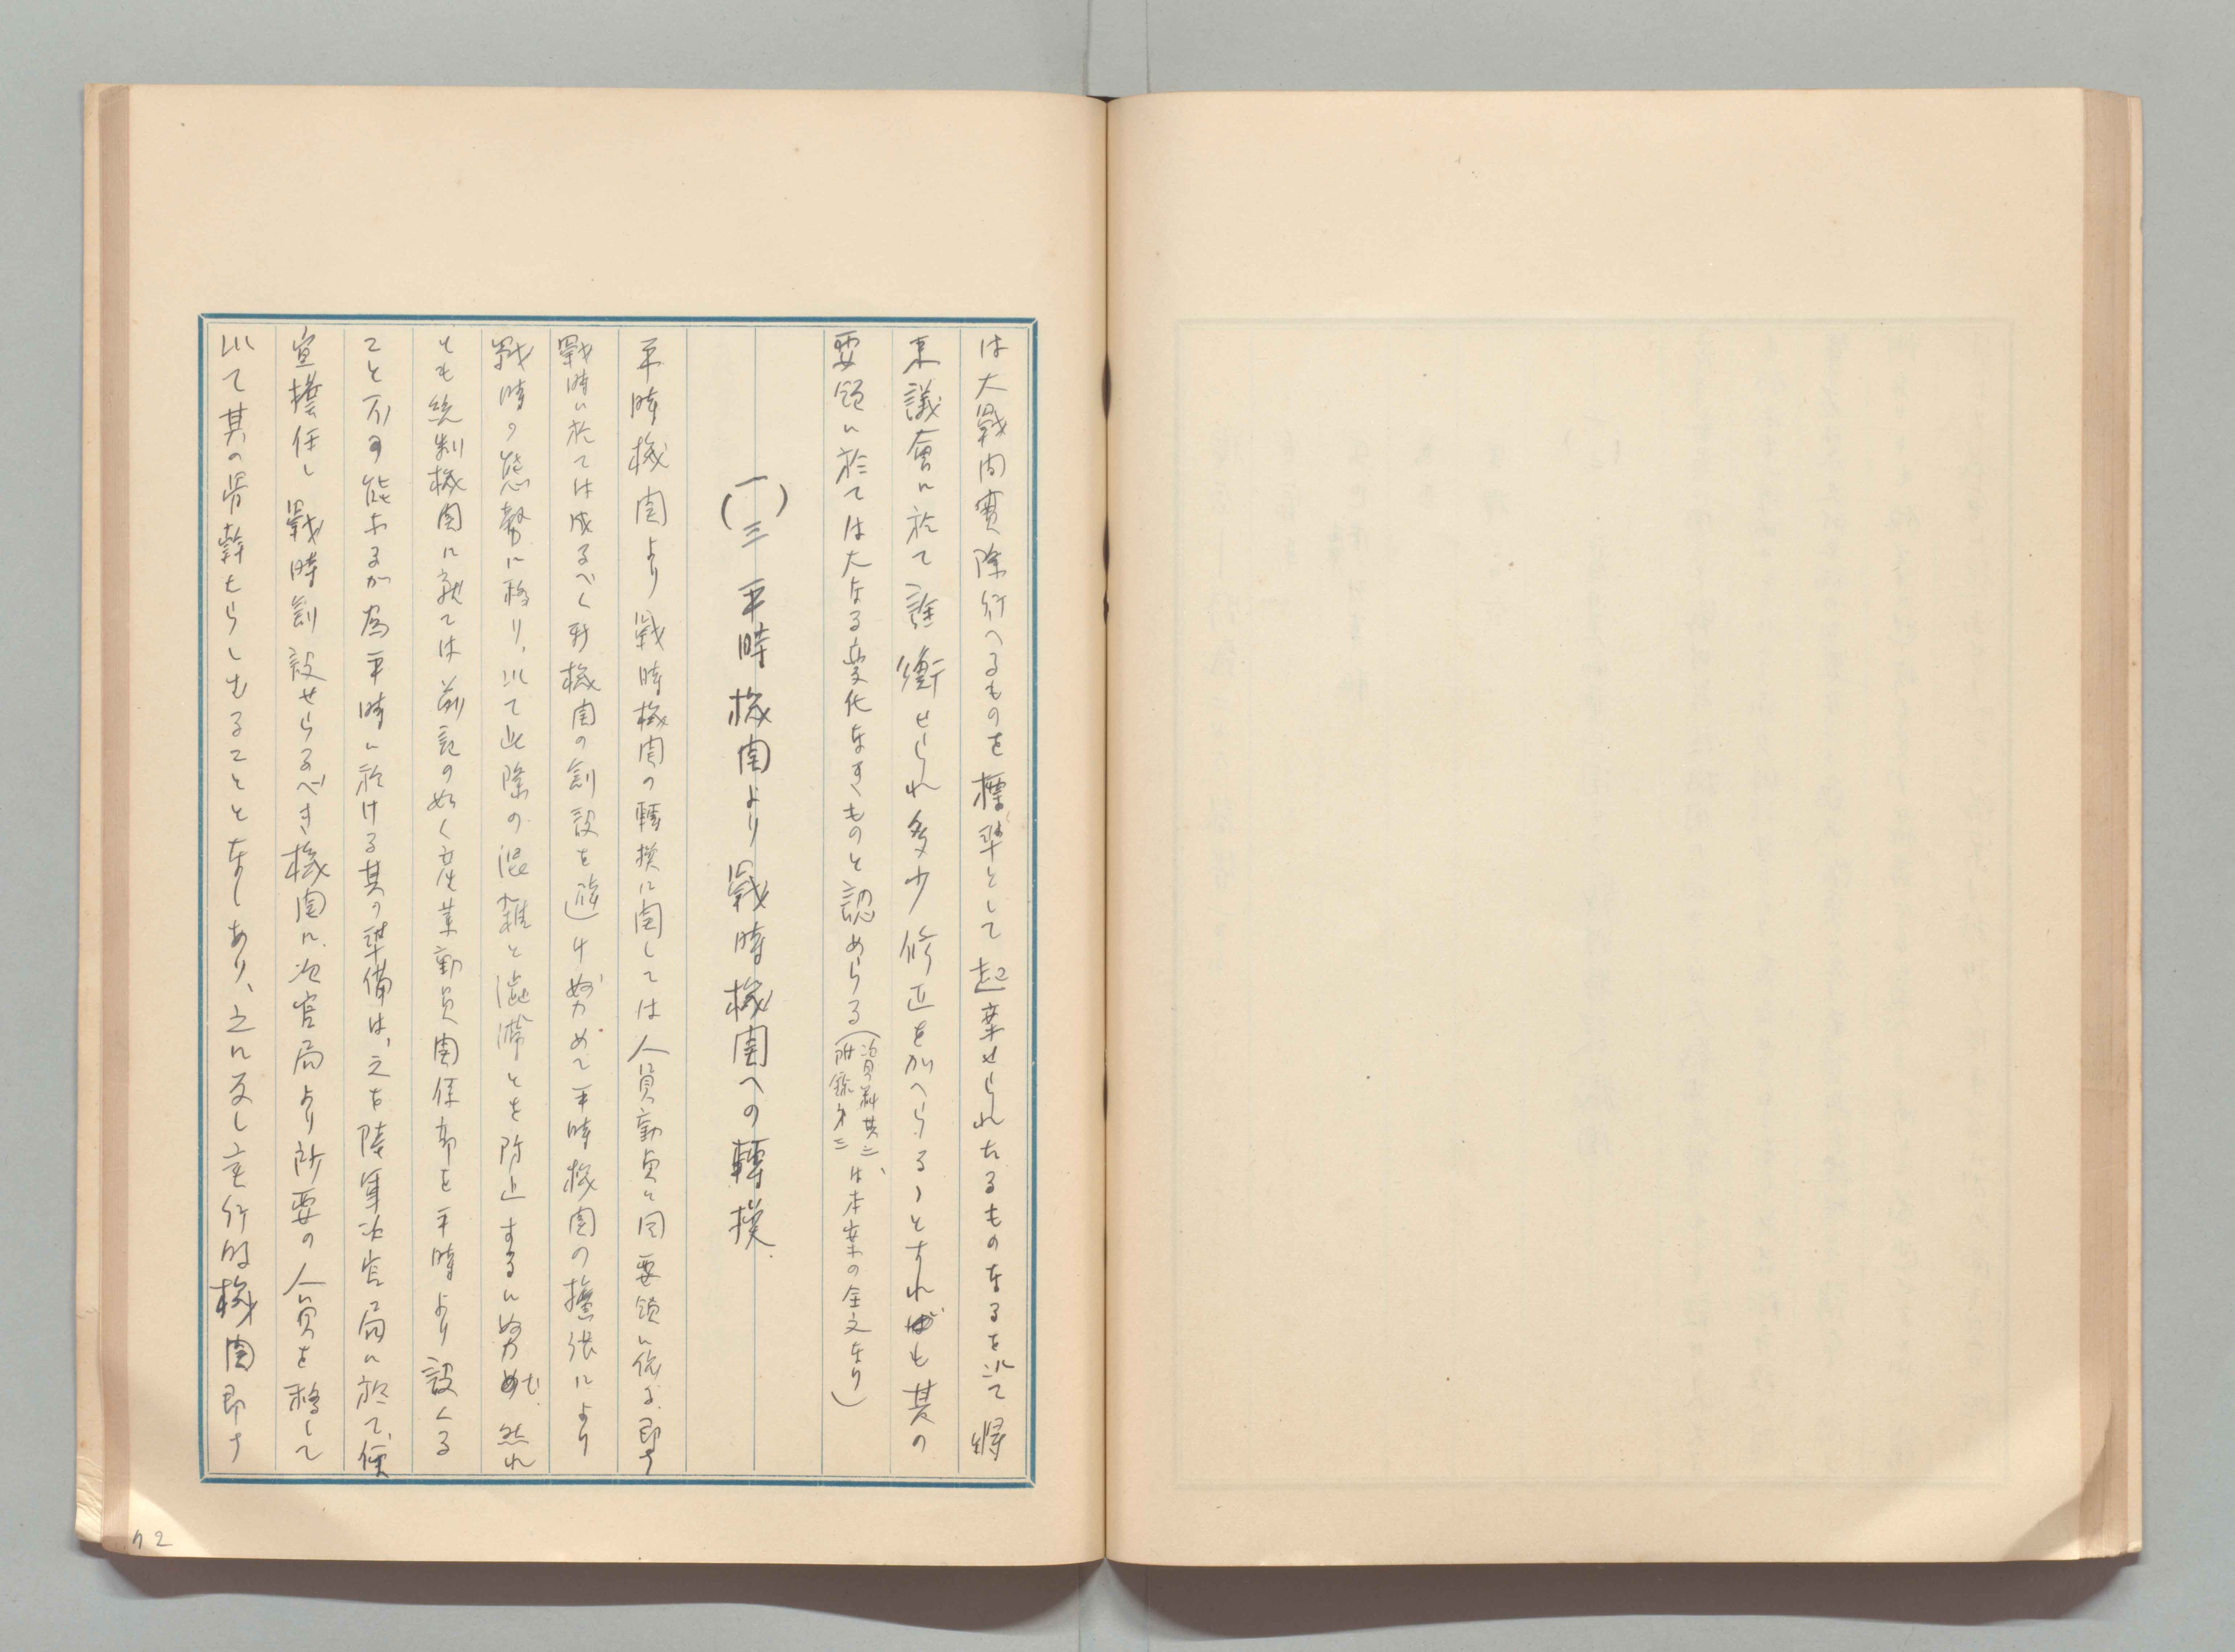 は大戰間實際行へるものを標準として起案せられたるものなるを以て將
来議會に於て詮衡せられ多少修正を加へらるゝとすれども其の
要領に於ては大なる變化なきものと認めらる(資料其二、附録第三は本案の全文なり)
(一三) 平時機関より戰時機関への轉換
平時機関より戰時機関の轉換に関しては人員動員と同要領に依る、即ち
戰時に於ては成るべく新機関の創設を避け努めて平時機関の擴張により
戰時の態勢に移り、以て此際の混雜と澁滯とを防止するに努む、然れ
とも統制機関に就ては前記の如く産業動員関係部を平時より設くる
こと不可能なるが為平時に於ける其の準備は、之を陸軍次官局に於て、便
宜擔任し戰時創設せらるべき機関に、次官局より所要の人員を移して
以て其の骨幹たらしむることとなしあり、之に反し執行的機関即ち
72